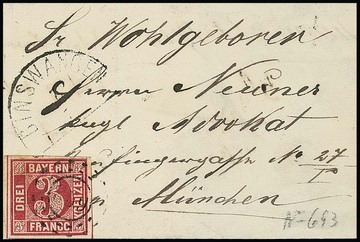 Sr Wohlgeboren
Herrn Neuner
kugl Advokat
No 27
I
München
BINSWANGEN
BAYERN
DREI
3
KREUZER
FRANCO
N-643